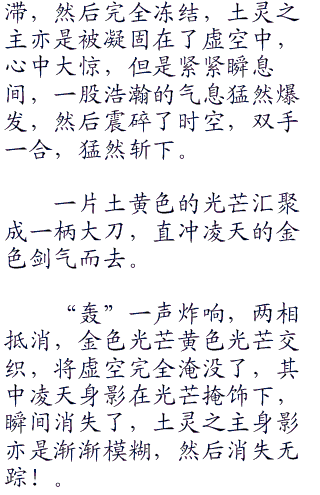 滞，然后完全冻结，土灵之
主亦是被凝固在了虚空中，
心中大惊，但是紧紧瞬息
间，一股浩瀚的气息猛然爆
发，然后震碎了时空，双手
一合，猛然斩下。
一片土黄色的光芒汇聚
成一柄大刀，直冲凌天的金
色剑气而去。
“轰”一声炸响，两相
抵消，金色光芒黄色光芒交
织，将虚空完全淹没了，其
中凌天身影在光芒掩饰下，
瞬间消失了，土灵之主身影
亦是渐渐模糊，然后消失无
踪！。